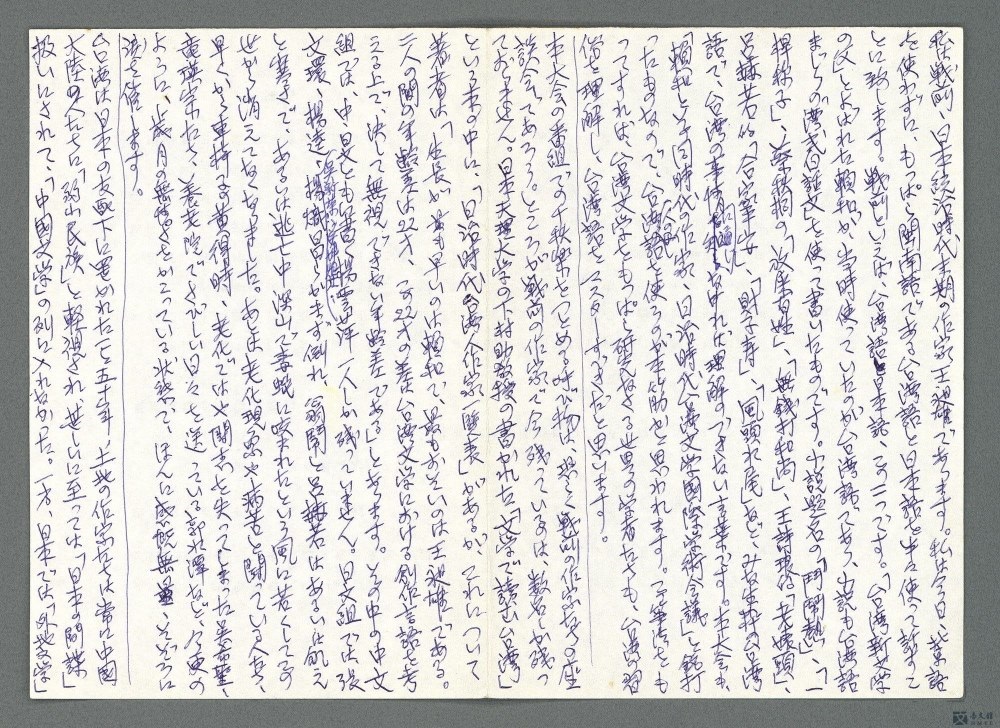 私は戦前、日本統治時代末期の作家王昶雄であります。私は今日、北京語
を使わずに、もっぱら閩南語である台湾語と日本語とを使って話すこ
とに致します。戦前といえば、台湾語と日本語、この二つです。「台湾新文学
の父」とよばれた頼和が当時使っていたのが台湾話であり、小説も台湾話
まじりの「漢式白話文」を使って書いたものです。小説題名の「鬥鬧熱」、「一
桿稱子」、蔡秋桐の「放屎百姓」、「無錢打和尚」、王詩琅の「老婊頭」、
呂赫若の「合家平安」、「財子寿」、「風頭水尾」など、みな生粋の台湾
語で、台湾の事情に なければ理解のできない言葉です。本大会も、
「頼和とその同時代の作家、日治時代台湾文学国際学術会議」と銘打
ったものなので、台湾語を使うのが本筋かと思われます。二の筆法をも
ってすれば、台湾文学をもっぱら研究なさる世界の学者たちも、台湾の習
俗を理解し、台湾語をマスターすべきだと思います。
本大会の番組で千秋楽をつとめる呼び物は、恐らく戦前の作家たちの座
談会であろう。ところが戦前の作家で今残っているのは、数名しか残っ
ておりません。日本天理大学の下村助教授の書かれた「文学で読む台湾」
という本の中に、「日治時代台湾人作家 表」があるが、これについて
著者は「生長が最も早いのは頼和で、最もおそいのは王昶雄である。
二人の間の年齢差は22才、この22才の差は台湾文学における創作言語を考
える上で、決して無視できない年齢差である」とあります。その中の中文
組では、中 とも 一人しか残っていません。日文組では張
文環、楊逵、楊熾昌とかまず倒れ、翁鬧と呂赫若はあるいは飢え
と寒さで、あるいは逃亡中深山で毒蛇に咬まれたという風に若くしてこの
世から消えてなくなりました。あとは老化現象や病苦と闘っている人たち、
早くから車椅子 時、老化では 闘志を失ってしまった 、
黄 たち、養老院でさびしい日々を送っている郭水潭など、今更の
ように、歳月の無情さをかこっている状態で、ほんに感慨無量、そぞろに
涙を催します。
台湾は日本の支配下に置かれたこと五十年、土地の作家たちは常に中国
大陸の人たちに「弱小民族」と軽視され、甚しいに至っては「日本の間諜」
扱いにされて、「中国文学」の列に入れなかった。一方、日本では「外地文学」